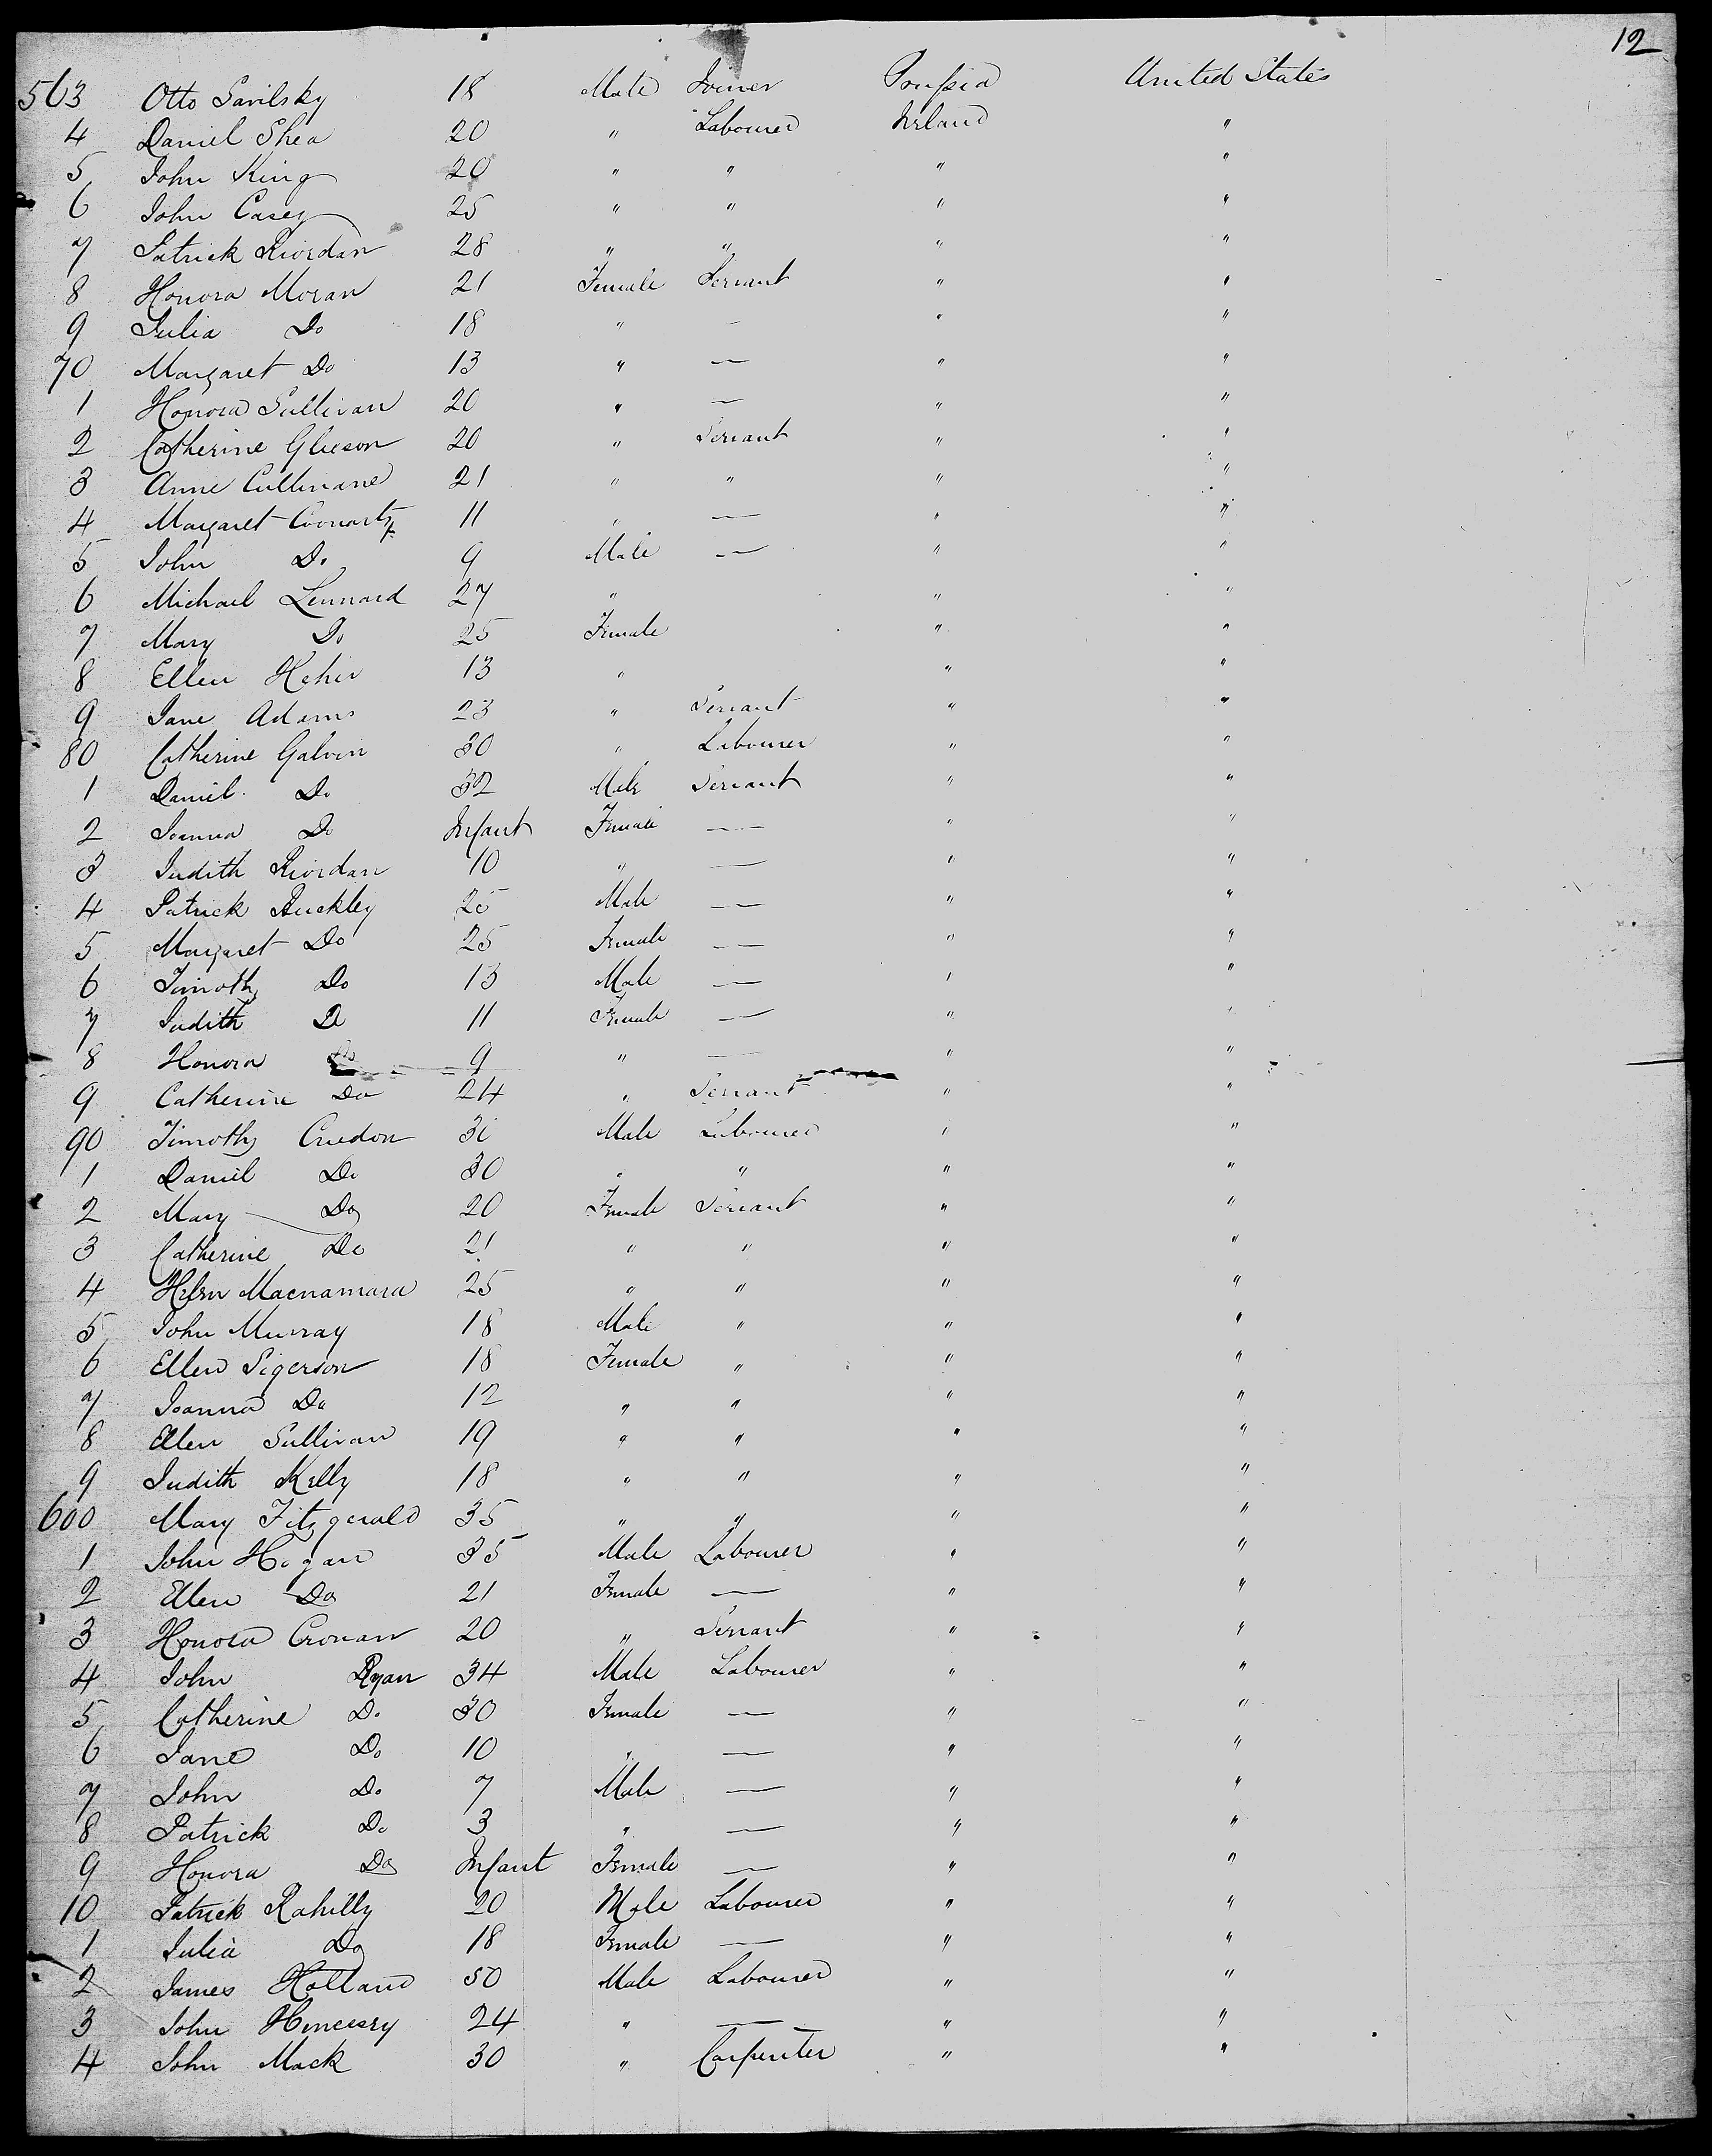 12
563 Otto Savilsky 18 Male Joiner Prussia United States
4 Daniel Shea 20 " Labourer Ireland "
5 John King 20 " " " "
6 John Casey 25 " " " "
7 Patrick Riordan 28 " " " "
8 Honora Moran 21 Female Servant " "
9 Julia Do 18 " — " "
70 Margaret Do 13 " — " "
1 Honora Sullivan 20 " — " "
2 Catherine Gleeson 20 " Servant " "
3 Anne Cullinane 21 " " " "
4 Margaret 11 " — " "
5 John Do 9 Male — " "
6 Michael Lennard 27 " " "
7 Mary Do 25 Female " "
8 Ellen Hehir 13 " " "
9 Jane Adams 23 " Servant " "
80 Catherine Galvin 30 " Labourer " "
1 Daniel Do 32 Male Servant " "
2 Joanna Do Infant Female — " "
3 Judith Riordan 10 " — " "
4 Patrick Buckley 25 Male — " "
5 Margaret Do 25 Female — " "
6 Timothy Do 13 Male — " "
7 Judith Do 11 Female — " "
8 Honora Do 9 " — " "
9 Catherine Do 24 " Servant " "
90 Timothy Creedon Male Labourer " "
1 Daniel Do 30 " " " "
2 Mary Do 20 Female Servant " "
3 Catherine Do 21 " " " "
4 Helen Macnamara 25 " " " "
5 John Murray 18 Male " " "
6 Ellen Sigerson 18 Female " " "
7 Joanna Do 12 " " " "
8 Ellen Sullivan 19 " " " "
9 Judith Kelly 18 " " " "
600 Mary Fitzgerald 35 " " " "
1 John Hogan 35 Male Labourer " "
2 Ellen Do 21 Female — " "
3 Honora Cronan 20 " Servant " "
4 John Ryan 34 Male Labourer " "
5 Catherine Do 30 Female — " "
6 Jane Do 10 " — " "
7 John Do 7 Male — " "
8 Patrick Do 3 " — " "
9 Honora Do Infant Female — " "
10 Patrick Rahilly 20 Male Labourer " "
1 Julia Do 18 Female — " "
2 James Holland 50 Male Labourer " "
3 John Hencessy 24 " — " "
4 John Mack 30 " Carpenter " "